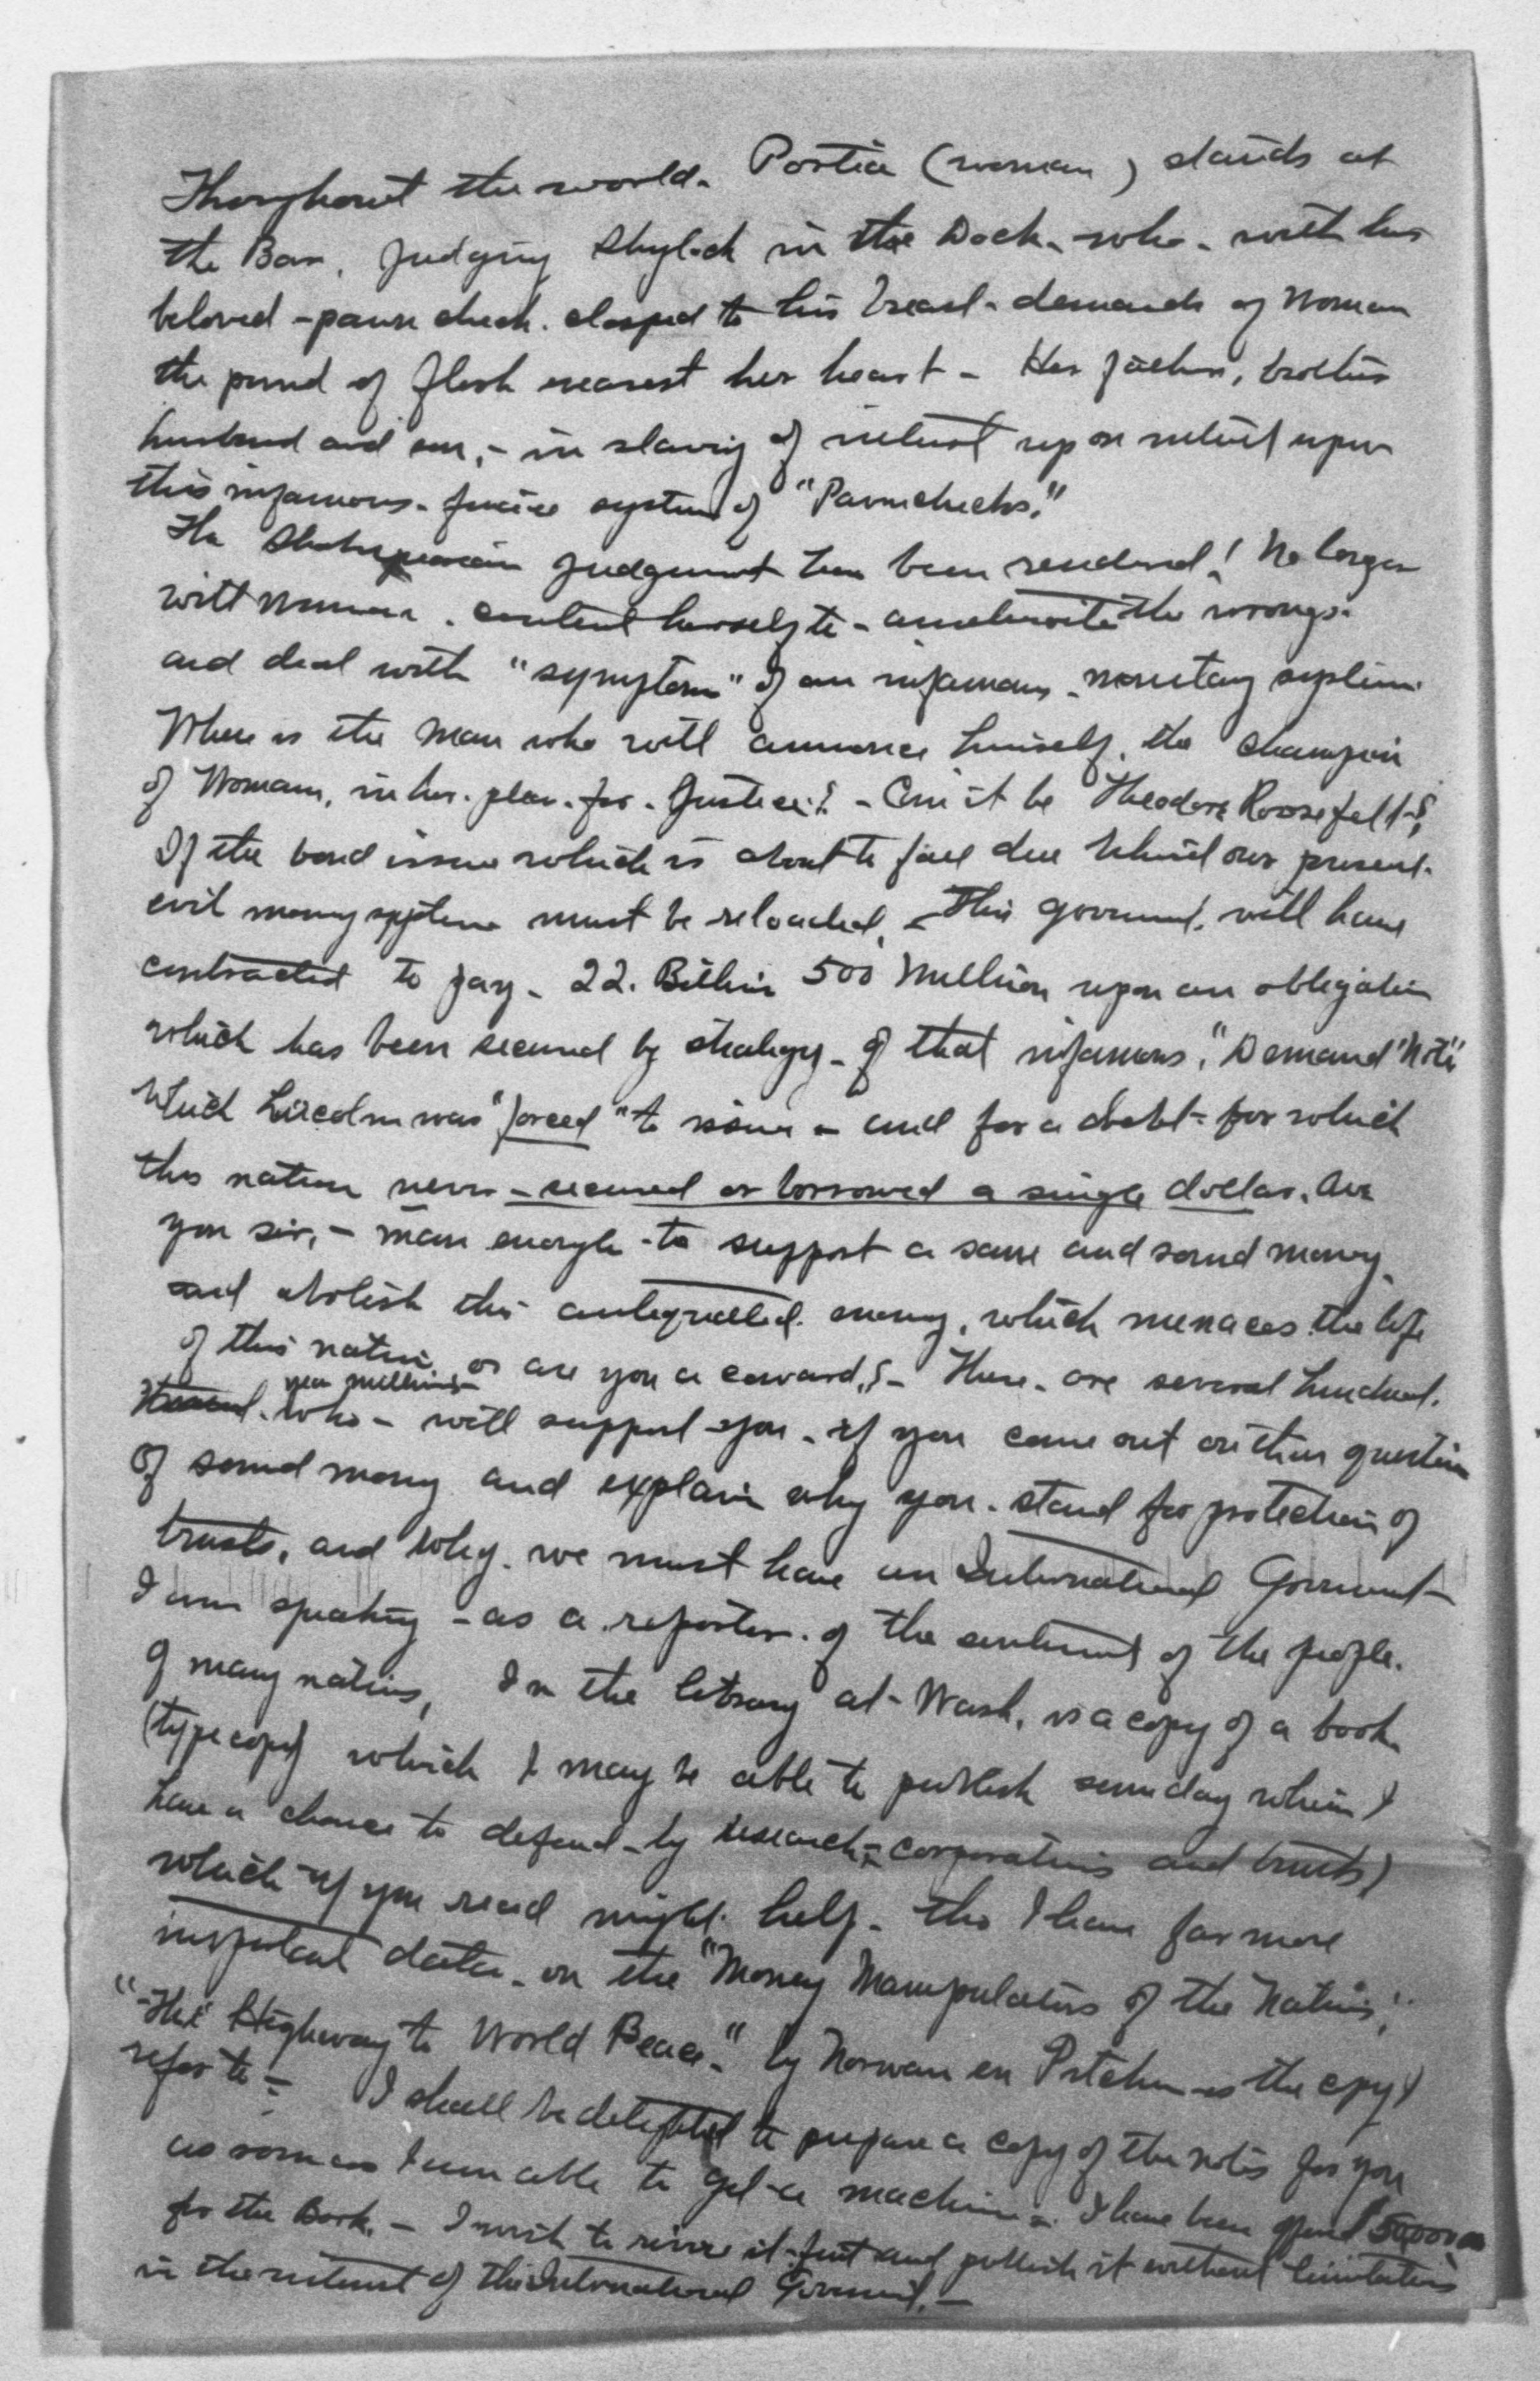 Thoroughout the world. Portia (woman) stands at
the Bar, judging Shylock in the Dock - who - with his
beloved - pawn check. clasped to his breast - demands of Woman
the pound of flesh nearest her heart - Her father, brother
husband and son, - in slavery of interest upon interest upon
this infamous system of "Pawnchecks."
The Shakesperian judgement has been rendered! No longer
will woman. content herself to - ameliorate the wrongs.
and deal with "symptoms" of an infamous - monetary system.
Where is the man who will announce himself, the champion
of Woman, in her. plea. for. Justice? - Can it be Theodore Roosefelt?
If the bond issue which is about to fall due behind our present.
evil money system must be reloaded, - This goverment. will have
contracted to pay - 22. Billion 500 Million upon an obligation
which has been secured by strategy - of that infamous, "Demand Note"
which Lincoln was "forced" to issue - and for a debt - for which
this nation never - secured or borrowed a single dollar. Are
you sir, - man enough - to support a sane and sound money.
and abolish this antequated. money, which menaces the life
of this nation. or are you a coward,? - There - are several hundred.
yea millions
who - will support you - if you come out on this question
of sound money and explain why you - stand for protection of
trusts, and why. we must have an International Goverment -
I am speaking - as a reporter. of the sentiment of the people.
of many nations, In the library at - Wash. is a copy of a book
(type copy) which I may be able to publish someday when I
have a chance to defend - by research - corporations and trusts)
which if you read might help - tho I have far more
important data - on the "Money Manipulators of the Nations,"
"The Highway to World Peace." by Norman en Pitcher is the copy I
refer to - I shall be delighted to prepare a copy of the notes for you
as soon as I am able to get a machine - I have been offered $50000.00
for the Book. - I wish to revise it first and publish it without limitations
in the interest of this International Goverment. -